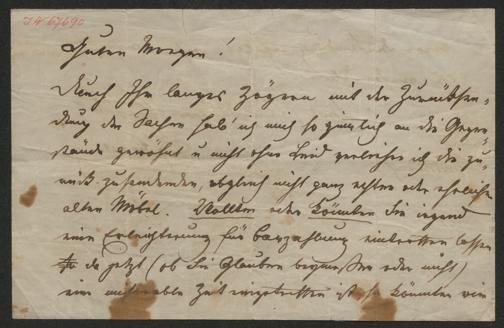 IN 67690
Guten Morgen!
Durch Ihr langes Zögern mit der Zurücksen-
dung der Sachen hab' ich mich so ziemlich an die Gegen-
stände gewöhnt u nicht ohne Leid verliere ich die zu-
rück zusendenden, obgleich nicht ganz echten oder ehrlichen
alten Möbel. Wollten oder könnten Sie irgend
eine Erleichterung für Barzahlung eintreten lassen
da jetzt (ob Sie Glauben beimessen oder nicht)
eine miserable Zeit eingetreten ist so könnten wir